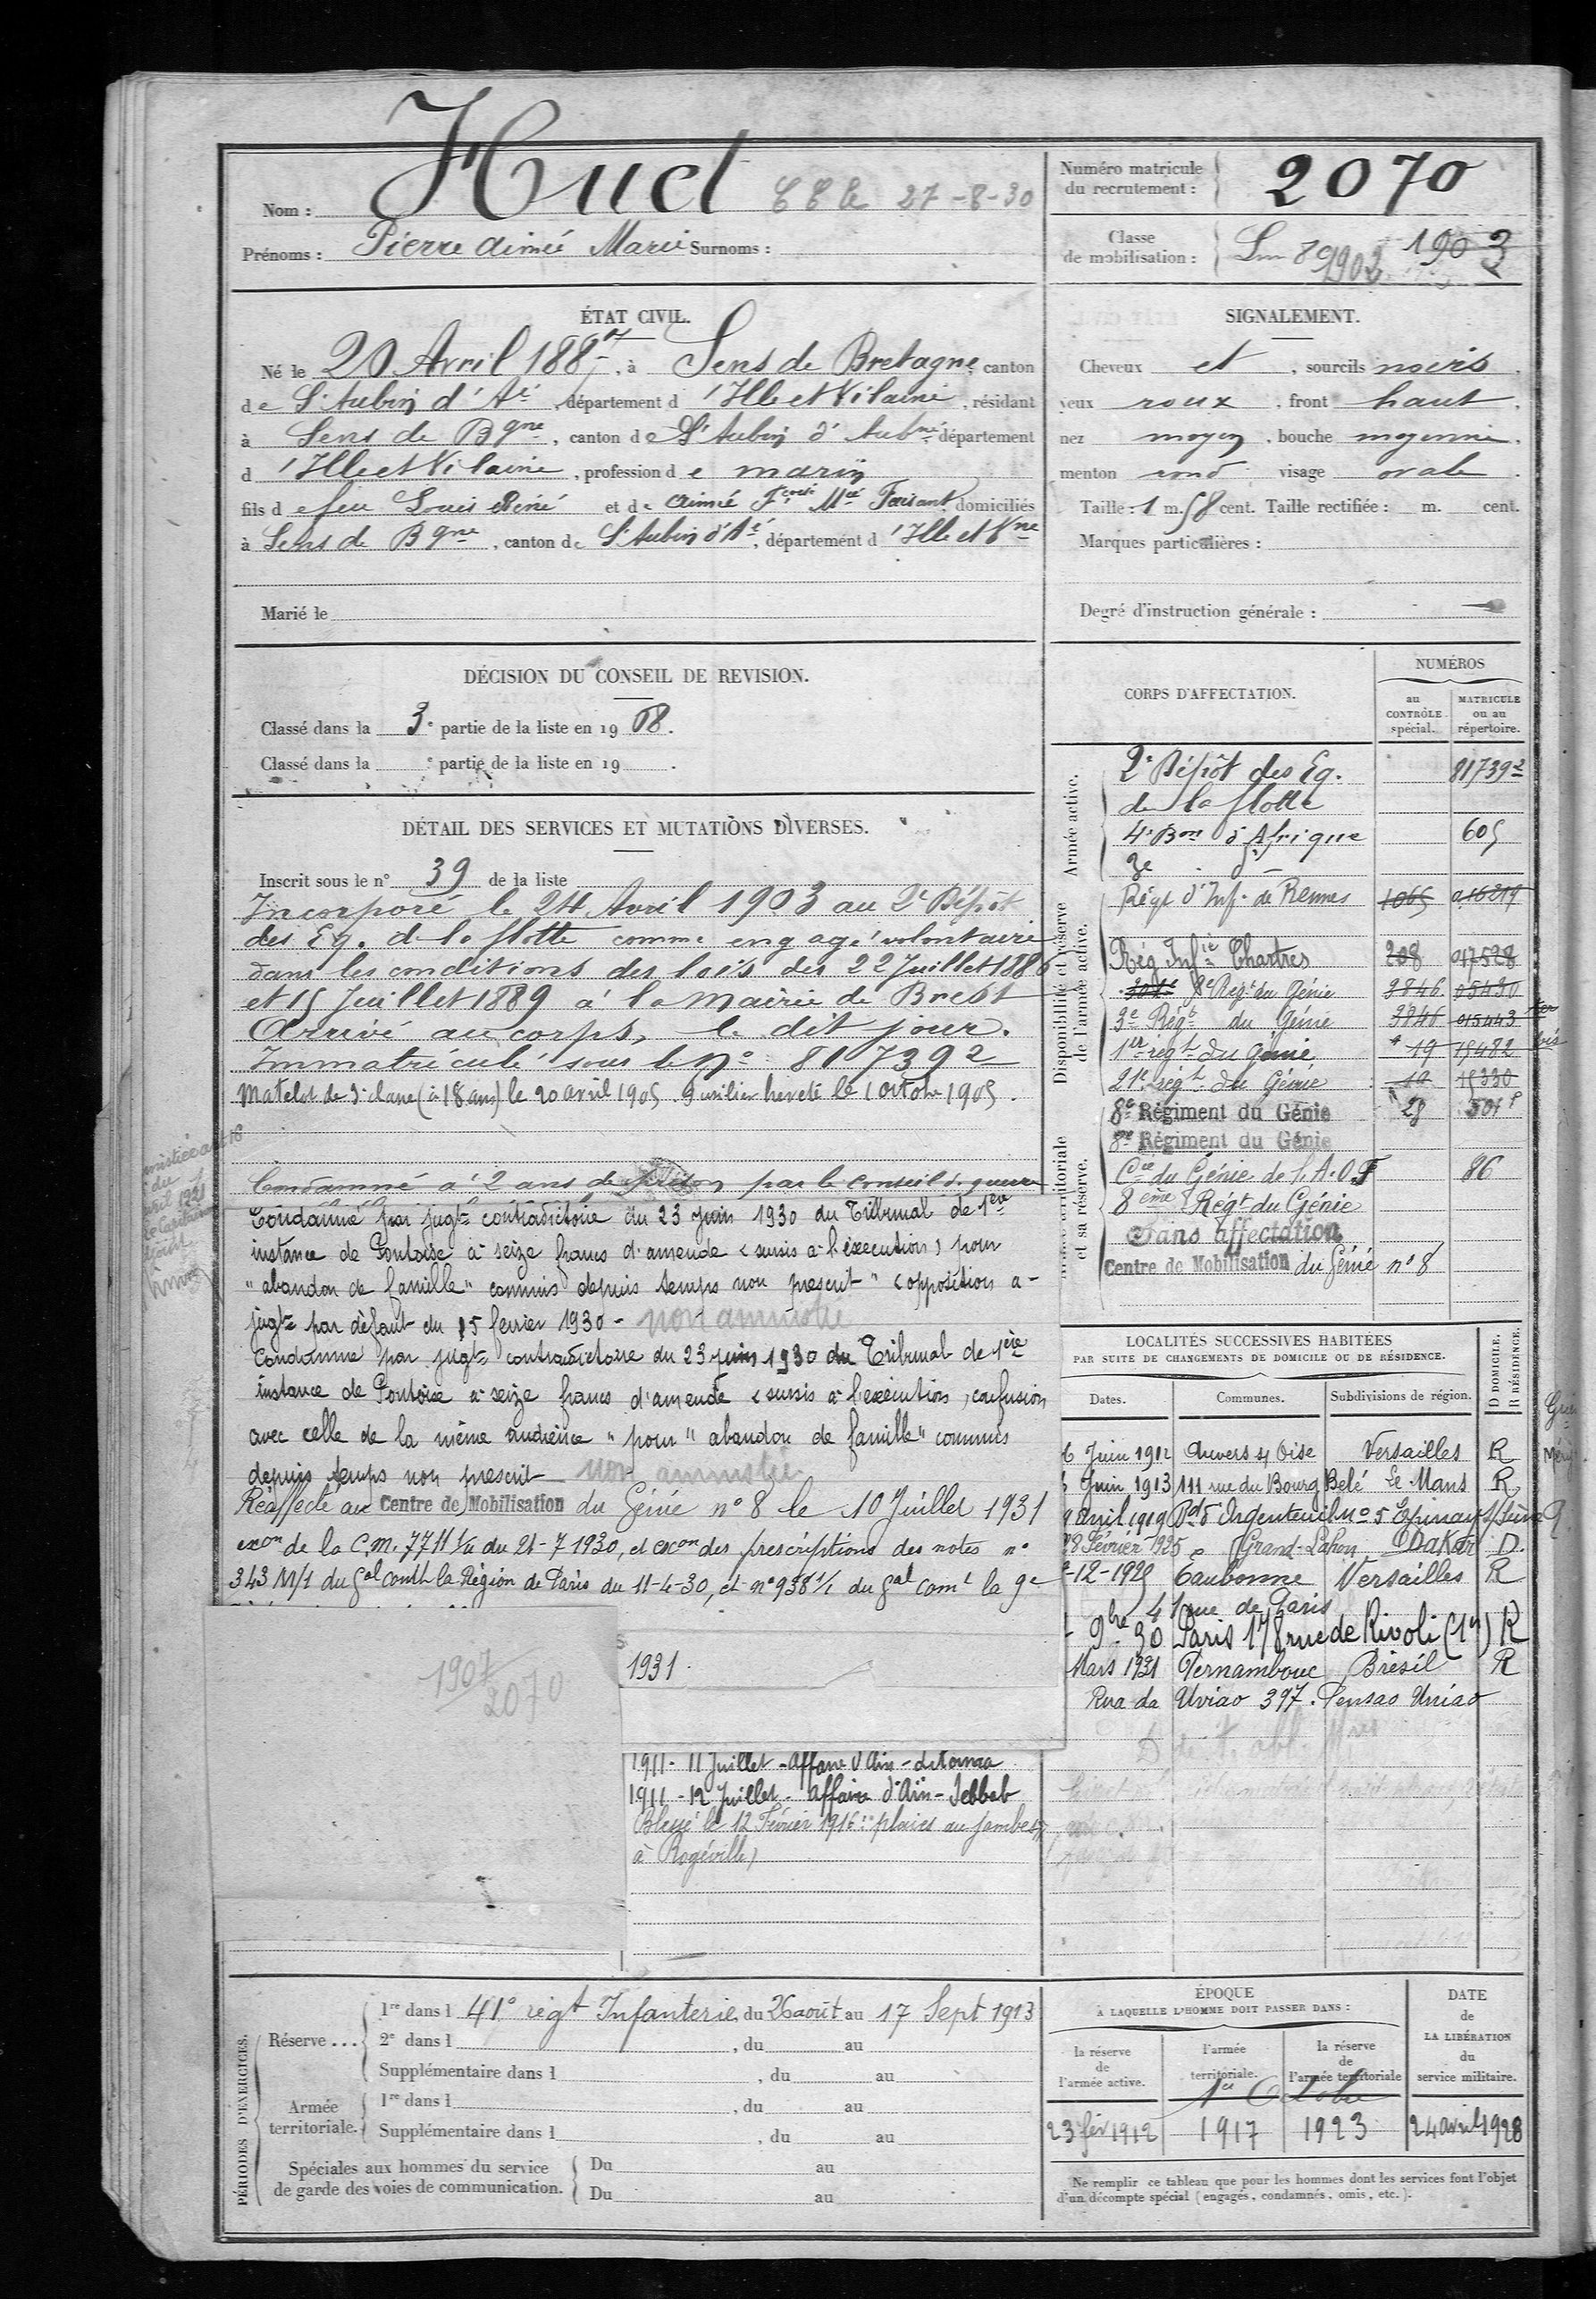 Nom : Huet
27-8-30
Prénoms : Pierre Aimé Marie Surnoms :
Numéro matricule du recrutement : 2070
Classe de mobilisation : 1902 1903
ÉTAT CIVIL.
Né le 20 Avril 1887, à Sens de Bretagne, canton
de St Aubin d'Aé, département d'Ille et Vilaine, résidant
à Sens de Bgne, canton de St Aubin d'Aubné département
d'Ille et Vilaine, profession de marin
fils de feu Louis René et de Aimée Fçoise Mie Faisant domiciliés
à Sens de Bgne, canton de St Aubin d'Aé, département d'Ille et Vne
Marié le
SIGNALEMENT.
Cheveux et, sourcils noirs,
yeux roux, front haut,
nez moyen, bouche moyenne,
menton rond visage ovale.
Taille : 1 m. 58 cent. Taille rectifiée : m. cent.
Marques particulières :
Degré d'instruction générale :
DÉCISION DU CONSEIL DE REVISION.
Classé dans la 3e partie de la liste en 1908.
Classé dans la e partie de la liste en 19 .
DÉTAIL DES SERVICES ET MUTATIONS DIVERSES.
Inscrit sous le n° 39 de la liste
Incorporé le 24 Avril 1903 au 2e Dépôt
des Eq. de la flotte comme engagé volontaire
dans les conditions des lois des 22 Juillet 1886
et 15 Juillet 1889 à la Mairie de Brest
Arrivé au corps, le dit jour.
Immatriculé sous le No 81739 2
Matelot de 3e classe (à 18 ans) le 20 avril 1905. Fusilier breveté le 1 octobre 1905.
Condamné à 2 ans de prison par le conseil de guerre
Condamné par jugt contradictoire du 23 juin 1930 du Tribunal de 1ère
instance de Pontoise à seize francs d'amende (sursis à l'exécution) pour
"abandon de famille" commis depuis temps non prescrit" (opposition à
jugt par défaut du 15 février 1930 - non amnistié
Condamné par jugt contradictoire du 23 juin 1930 du Tribunal de 1ère
instance de Pontoise à seize francs d'amende (sursis à l'exécution, confusion
avec celle de la même audience "pour" abandon de famille" commis
depuis temps non prescrit - non amnistié
Réaffecté au Centre de Mobilisation du Génie n° 8 le 10 Juillet 1931
exon de la C.M. 7711 du 21-7-1930, et exon des prescriptions des notes n°
343 M/1 du Gal comt la Région de Paris du 11-4-30, et n° 938 1/1 du Gal comt la 9e
1931.
1907
2070
1911 - 11 Juillet - Affaire d'Aïn-
1911 - 12 Juillet - Affaire d'Aïn-Sebbab
Blessé le 12 Février 1916 : plaies aux jambes
à Rogéville)
CORPS D'AFFECTATION.
NUMÉROS
au CONTRÔLE spécial.
MATRICULE ou au répertoire.
Armée active.
2e Dépôt des Eq. 81739 2
de la flotte
4e Bon d'Afrique 605
3e . d° -
Disponibilité et réserve de l'armée active.
Régt d'Inf. de Rennes 1065 016219
Rég Infie Chartres 208 017528
8e Régt du Génie 9846 05430
3e Régt du Génie 9846 015443
1er régt du Génie 19 15482
21e régt du Génie 19 15330
et sa réserve.
8e Régiment du Génie 28
8e Régiment du Génie
Cie du Génie de l'A.O.F 86
8ème Régt du Génie
Sans affectation
Centre de Mobilisation du Génie n° 8
LOCALITÉS SUCCESSIVES HABITÉES
PAR SUITE DE CHANGEMENTS DE DOMICILE OU DE RÉSIDENCE.
Dates. Communes. Subdivisions de région. D DOMICILE. R RÉSIDENCE.
6 Juin 1912 Auvers s/ Oise Versailles R
Juin 1913 111 rue du Bourg Belé Le Mans R
avril 1919 Bd d'Argenteuil No 5 Epinay s/Seine
8 Février 1925 Grand-Lahou Dakar D.
-12-1929 Eaubonne Versailles R
41 rue de Paris
9bre 30 Paris 178 rue de Rivoli (1er) R
Mars 1931 Pernambouc Brésil R
Rua da Uniao 397. Pensao Uniao
PÉRIODES D'EXERCICES.
Réserve ...
1re dans l 41e régt Infanterie, du 26 août au 17 Sept 1913
2e dans l , du au
Supplémentaire dans l , du au
Armée territoriale.
1re dans l , du au
Supplémentaire dans l , du au
Spéciales aux hommes du service
de garde des voies de communication.
Du au
Du au
ÉPOQUE
À LAQUELLE L'HOMME DOIT PASSER DANS :
la réserve de l'armée active.
l'armée territoriale.
la réserve de l'armée territoriale
DATE de LA LIBÉRATION du service militaire.
1er Octobre
23 fév 1912 1917 1923 24 avril 1928
Ne remplir ce tableau que pour les hommes dont les services font l'objet
d'un décompte spécial (engagés, condamnés, omis, etc.).